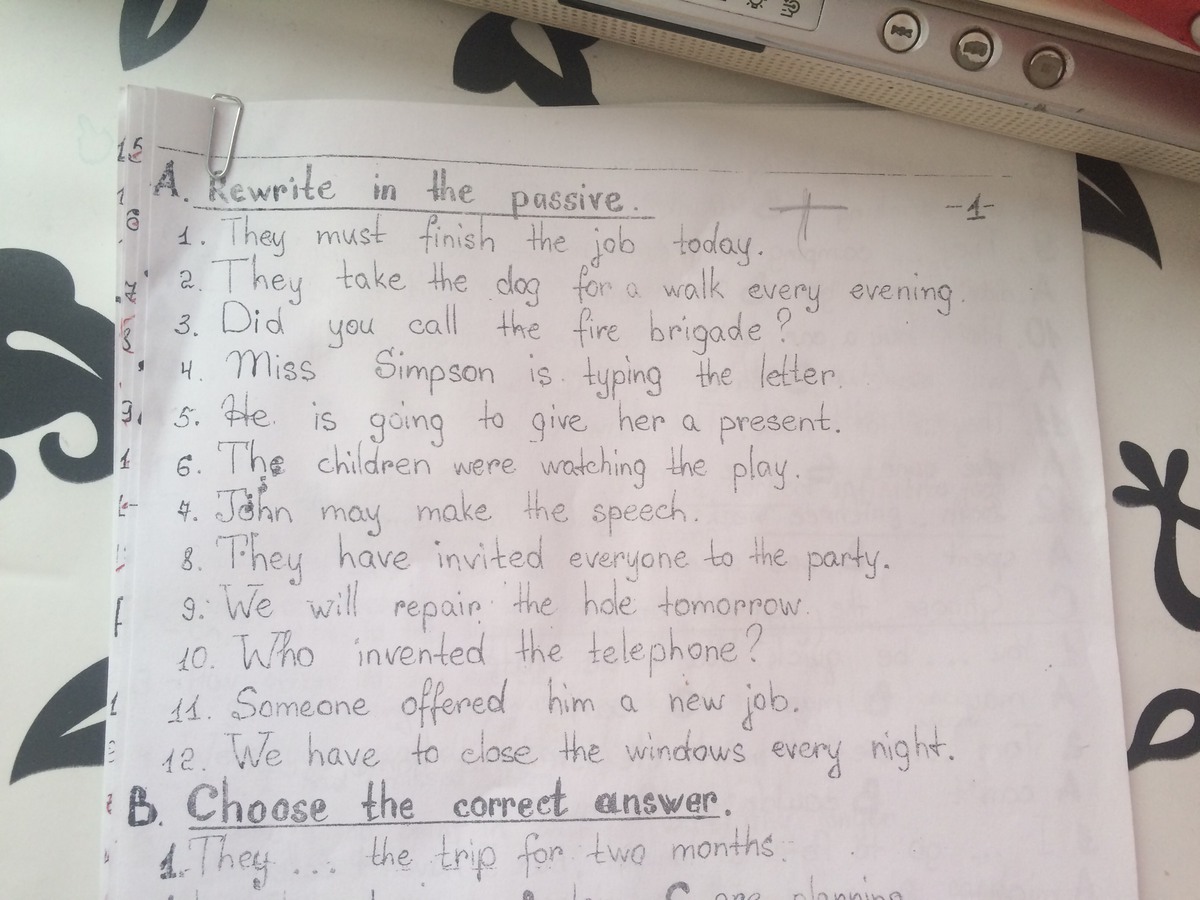 A. Rewrite in the passive.
-1-
1. They must finish the job today.
2. They take the dog for a walk every evening.
3. Did you call the fire brigade?
4. Miss Simpson is typing the letter.
5. He is going to give her a present.
6. The children were watching the play.
7. John may make the speech.
8. They have invited everyone to the party.
9. We will repair the hole tomorrow.
10. Who invented the telephone?
11. Someone offered him a new job.
12. We have to close the windows every night.
B. Choose the correct answer.
1. They ... the trip for two months.
C are planning